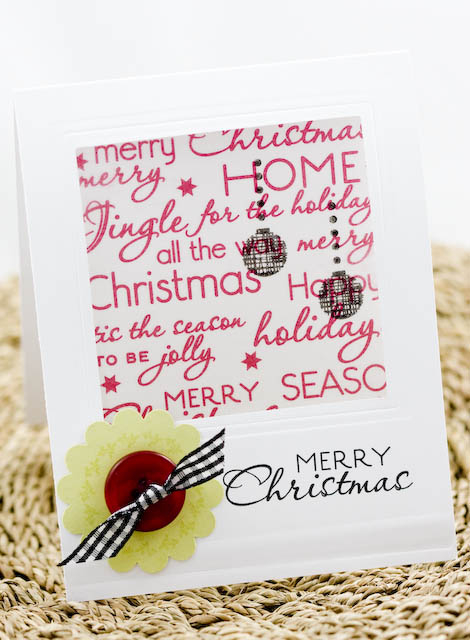 merry Christmas
merry HOME
Jingle for the holiday
all the way merry
Christmas Happy
tis the season holiday
TO BE jolly
MERRY SEASO
Christmas
MERRY
Christmas